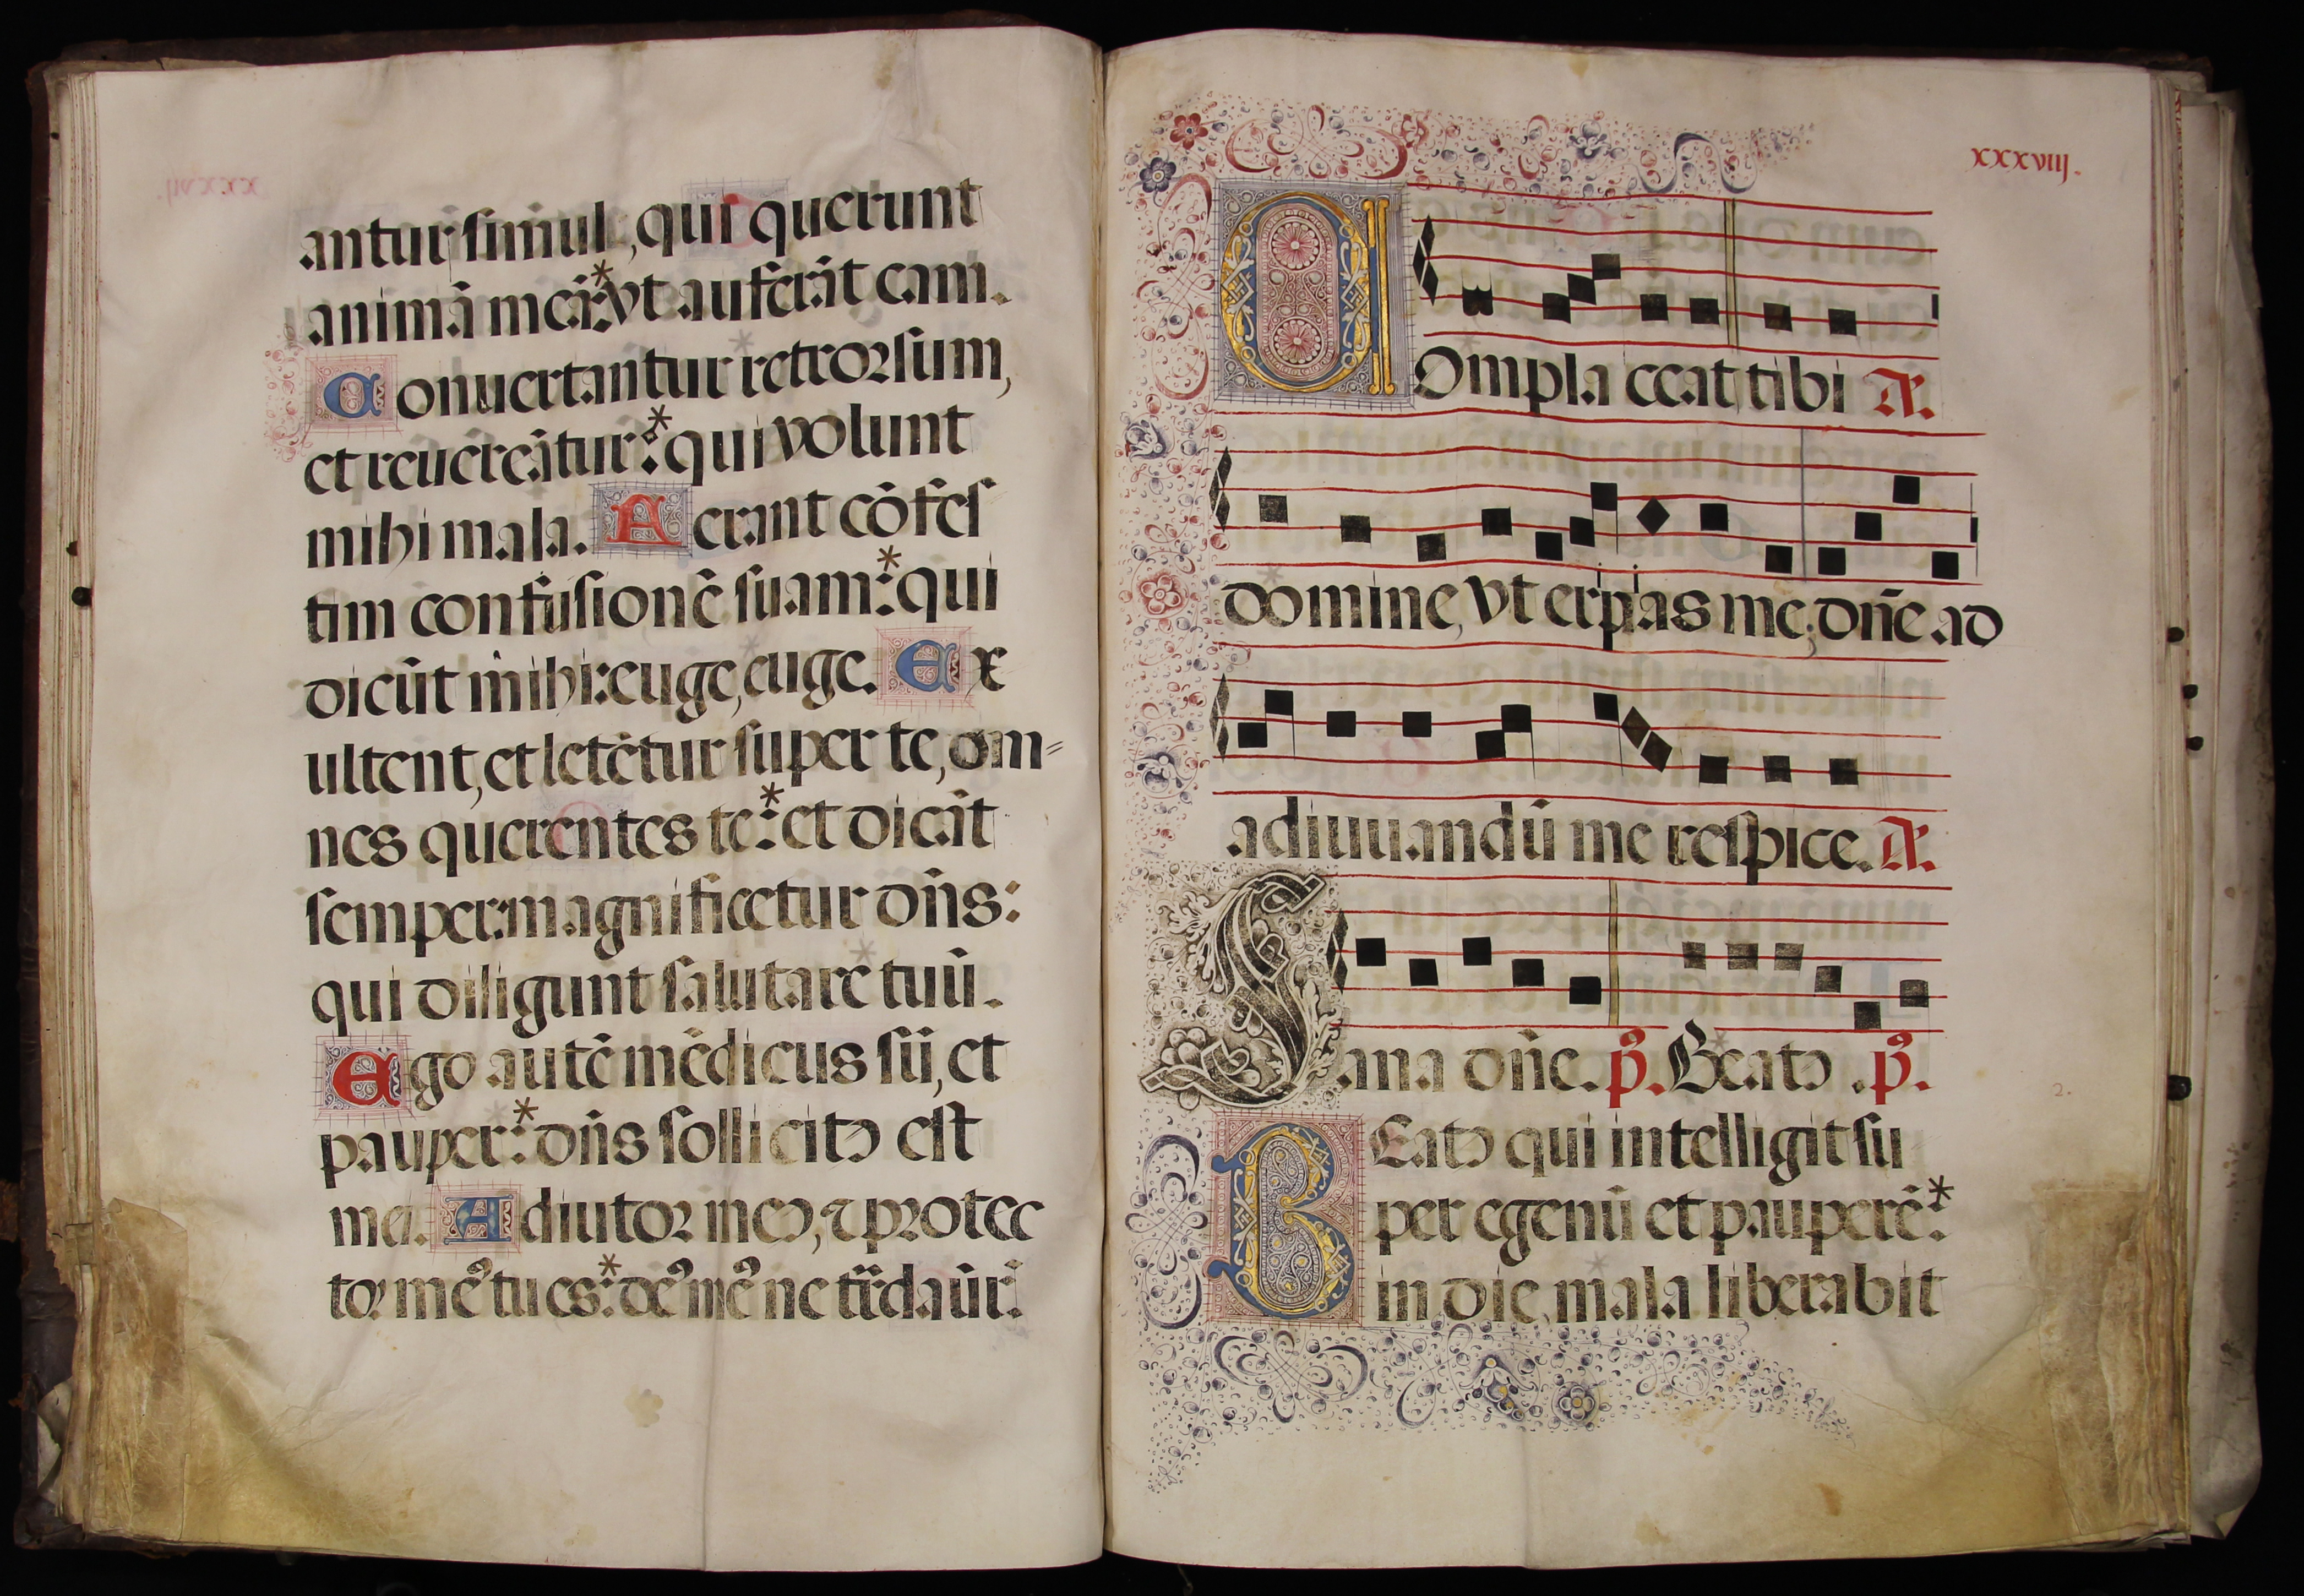 antur simul, qui querunt
animā meā:* vt auferāt eam.
Conuertantur retrorsum,
et reuereātur:* qui volunt
mihi mala. Ferant cōfes
tim confusionē suam:* qui
dicūt mihi: euge, euge. Ex
ultent, et letētur super te, om=
nes querentes te:* et dicāt
semper: magnificetur dn̄s:
qui diligunt salutare tuū.
Ego autē mēdicus sū, et
pauper:* dn̄s sollicitꝯ est
mei. Adiutor meꝯ, ⁊ protec
tor meꝰ tu es:* deꝰ meꝰ ne
xxxviij.
Compla ceat tibi
domine, vt eripias me, dn̄e ad
adiuuandū me respice.
Sana dn̄e. p̄s. Beatꝯ . p̄s.
2.
BEatꝯ qui intelligit su
per egenū et pauperē:*
in die mala liberabit